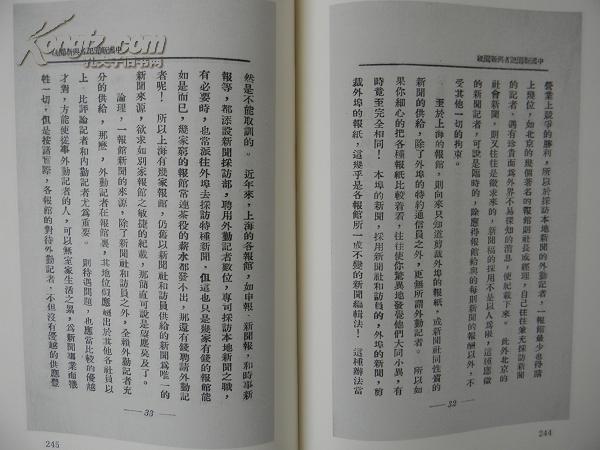 中國新聞記者與新聞紙
營業上競爭的勝利，所以於採訪本地新聞的外勤記者，一報館最少也得聘
上幾位，如北京的幾個著名的報館則社長或經理，自己往往兼充採訪新聞
的記者，遇有珍貴而爲外界不易探知的消息，便紀載下來。　此外北京的
社會新聞，則又往往是徵求來的，新聞稿的採用不是以人爲限，這種應徵
的新聞記者，可說是臨時的，除應得報館給與的每則新聞的報酬以外，不
受其他一切的拘束。
至於上海的報館，則向來只知道剪裁外埠的報紙，或新聞社同性質的
新聞的供給，除了外埠的特約通信員之外，更無所謂外勤記者。　所以如
果你細心的把各種報紙比較着看，往往使你驚異地發覺他們大同小異，有
時竟至完全相同！　本埠的新聞，採用新聞社和訪員的，外埠的新聞，剪
裁外埠的報紙，這幾乎是各報館所一成不變的新聞編輯法！　這種辦法當
— 32 —
244
中國新聞記者與新聞紙
然是不能取訓的。　近年來，上海的各報館，如申報，新聞報，和時事新
報等，都添設新聞採訪部，聘用外勤記者數位，專司採訪本地新聞之職，
有必要時，也常派往外埠去採訪特種新聞，但這也只是幾家有錢的報館能
如是而已，幾家窮的報館常連茶役的薪水都發不出，那還有錢聘請外勤記
者呢！　所以上海有幾家報館，仍舊以新聞社和訪員供給的新聞爲唯一的
新聞來源，欲求如別家報館之敏捷的紀載，那簡直可說是望塵莫及了。
論理，一報館新聞的來源，除了新聞社和訪員之外，全賴外勤記者充
分的供給，那麼，外勤記者在報館裏，其地位似應超出於其他各社員以
上，比評論記者和內勤記者尤爲重要。　則待遇問題，也應當比較的優越
才對，方能使從事外勤記者的人，可以無室家生活之累，爲新聞事業而犧
牲一切，但是按諸實際，各報館的對待外勤記者，不但沒有優越的供應豐
— 33 —
245
Kongfz.com
孔夫子旧书网